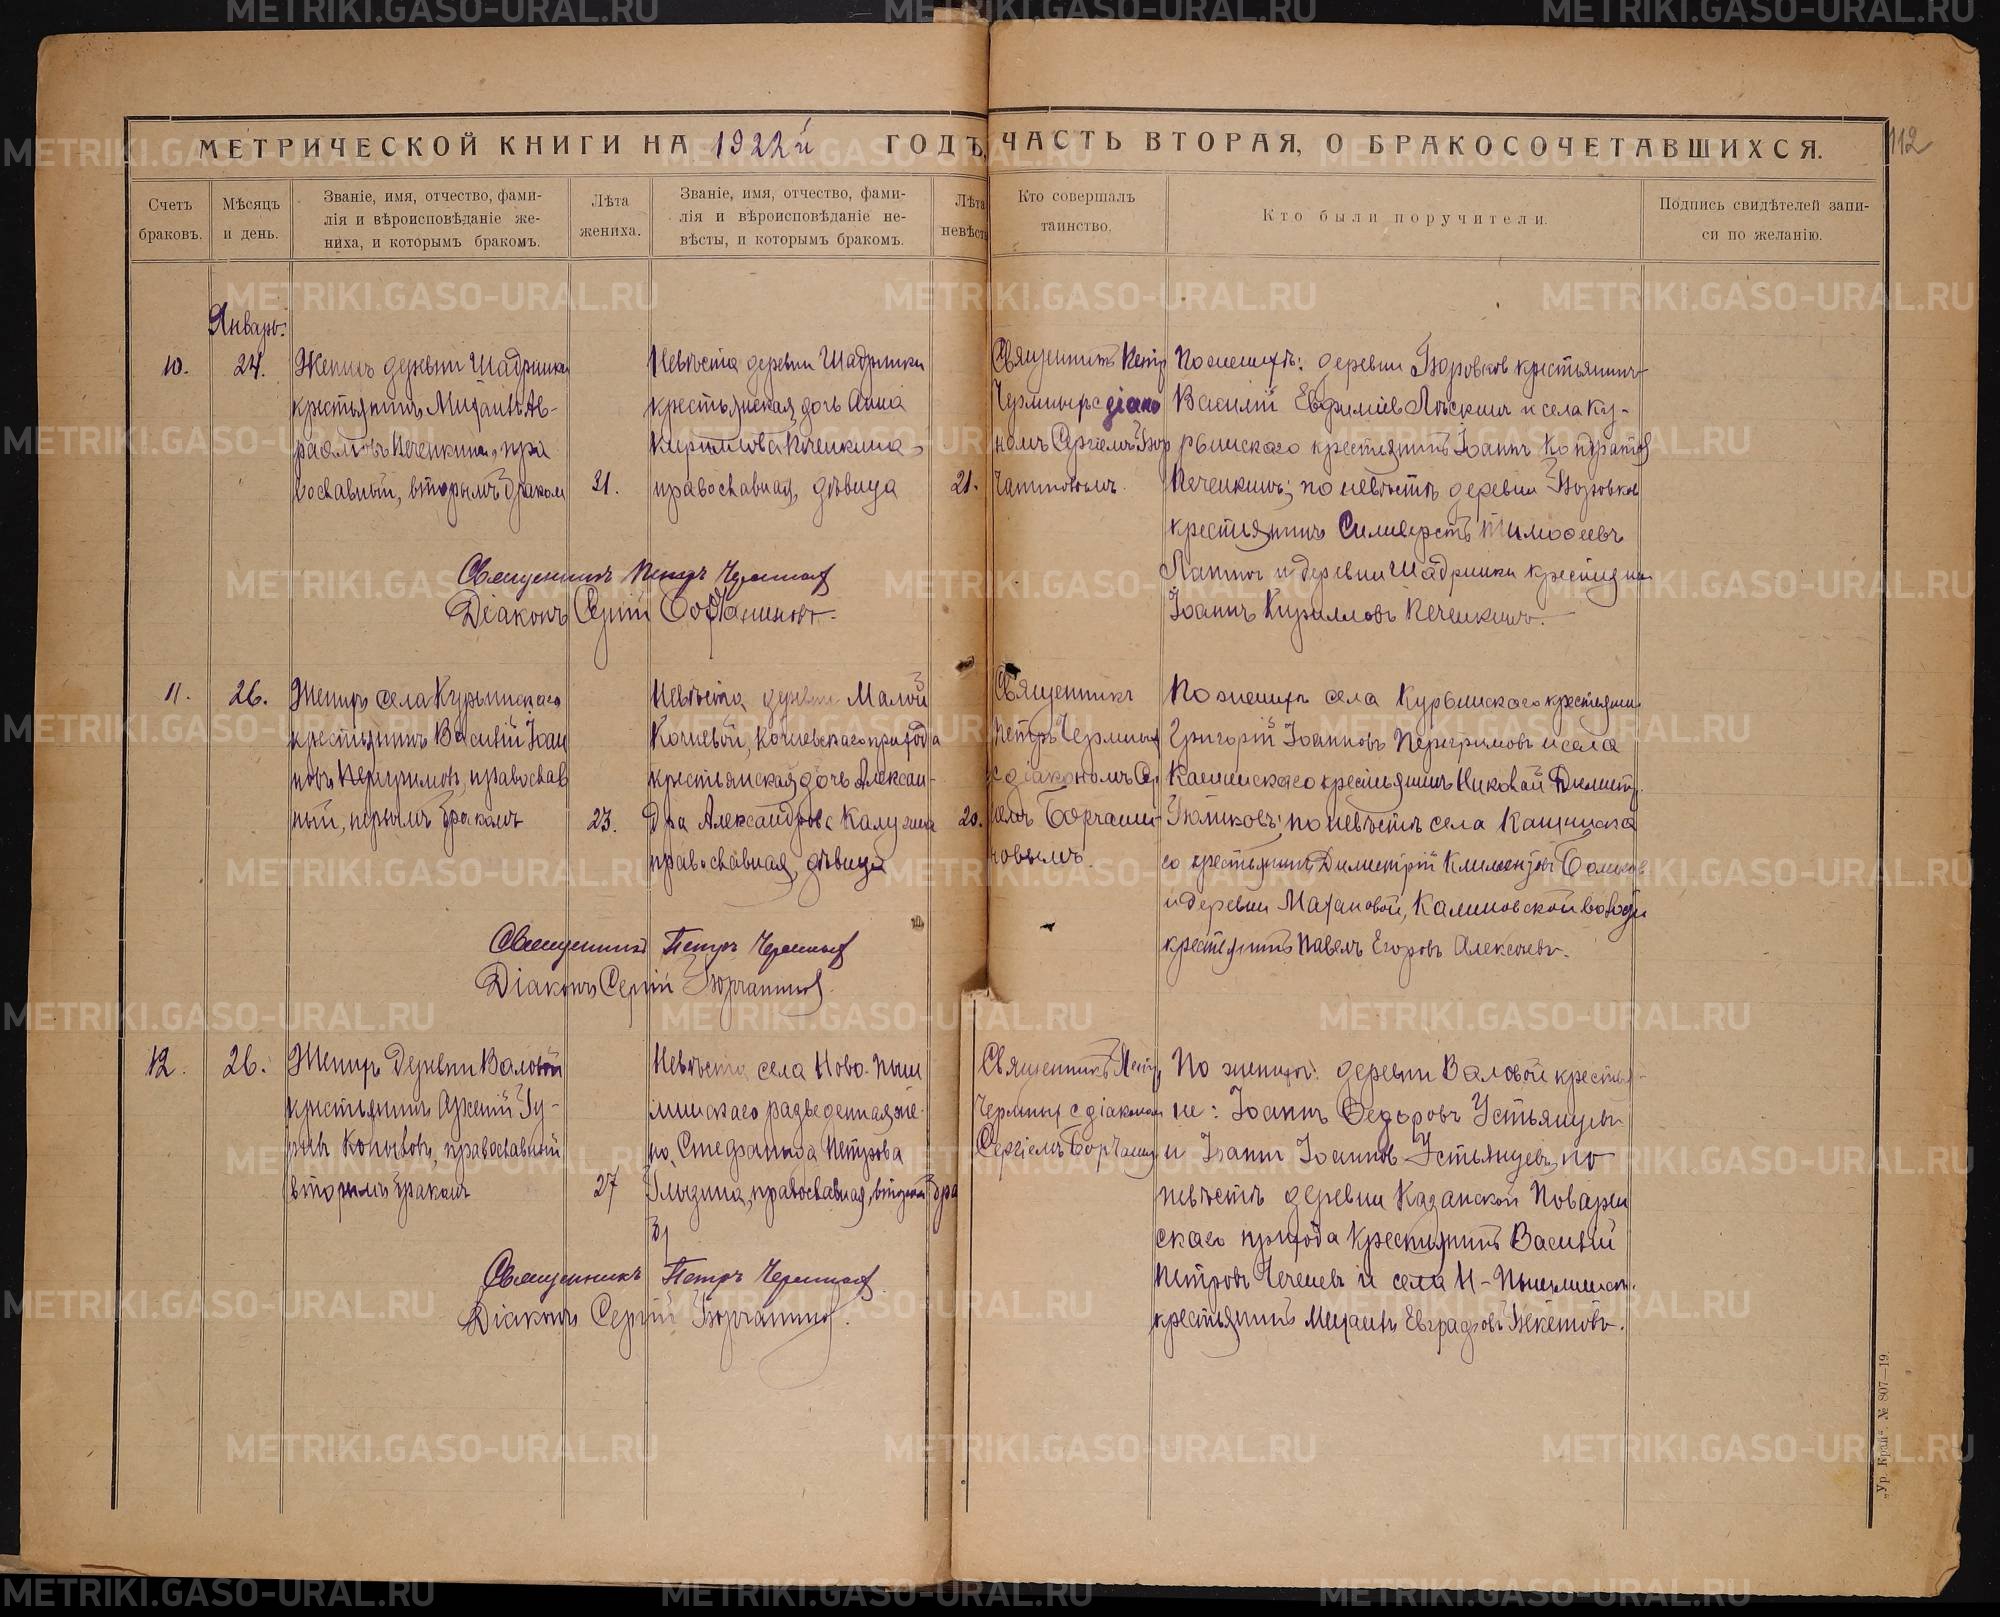 МЕТРИЧЕСКОЙ КНИГИ НА 1922й ГОДЪ, ЧАСТЬ ВТОРАЯ, О БРАКОСОЧЕТАВШИХСЯ.
112
Счетъ браковъ.
Мѣсяцъ и день.
Званіе, имя, отчество, фами-
лія и вѣроисповѣданіе же-
ниха, и которымъ бракомъ.
Лѣта жениха.
Званіе, имя, отчество, фами-
лія и вѣроисповѣданіе не-
вѣсты, и которымъ бракомъ.
Лѣта невѣсты
Кто совершалъ
таинство.
Кто были поручители.
Подпись свидѣтелей запи-
си по желанію.
Январь.
10.
24.
Женихъ деревни Шадринки
крестьянинъ Михаилъ Ав-
рамовъ Печенкинъ, пра
вославный, вторымъ бракомъ
21.
Невѣста деревни Шадринки
крестьянская дочь Анна
Кириллова Печенкина,
православная, дѣвица
21.
Священникъ Петр
діако
номъ Сергіемъ Бор
чаниновымъ.
По женихѣ: деревни крестьянинъ
Василій Евфиміевъ и села Ку-
рьинскаго крестьянинъ Іоаннъ Кондратов
Печенкинъ; по невѣстѣ деревни
крестьянинъ Тимофеевъ
и деревни Шадринки крестьянин
Іоаннъ Кирилловъ Печенкинъ.
Священникъ Петръ
Діаконъ Сергій Борчаниновъ.
11.
26.
Женихъ села Курьинскаго
крестьянинъ Василій Іоан
новъ православ
ный, первымъ бракомъ
23.
Невѣста деревни Малой
Кочневой, Кочневскаго прихода
крестьянская дочь Алексан-
дра Александрова
православная, дѣвица
20.
Священникъ
Петръ
с діакономъ Сер
Борчани-
новымъ.
По женихѣ села Курьинскаго крестьянин
Григорій Іоанновъ и села
крестьянинъ Николай Димитр.
по невѣстѣ села
го крестьянинъ Димитрій Климентовъ
и деревни Калиновской волости
крестьянинъ Павелъ Егоровъ Алексѣевъ.
Священникъ Петръ
Діаконъ Сергій Борчаниновъ.
12.
26.
Женихъ деревни Валовой
крестьянинъ Арсеній Гу-
православный
вторымъ бракомъ
27
Невѣста села Ново-Пыш
минскаго разведенная же-
на, Стефанида Петрова
православная, вторымъ бра
Священникъ Петр
с діакономъ
Сергіемъ Борчанин
По женихѣ: деревни Валовой крестья-
не: Іоаннъ Федоровъ Устьянцевъ
и Іоаннъ Іоанновъ Устьянцевъ, по
невѣстѣ деревни Казанской
скаго прихода крестьянинъ Василій
Петровъ и села Н-Пышминск.
крестьянинъ Михаилъ Евграфовъ Бекетовъ.
Священникъ Петръ
Діаконъ Сергій Борчаниновъ.
„Ур. Край“. № 807—19.
METRIKI.GASO-URAL.RU